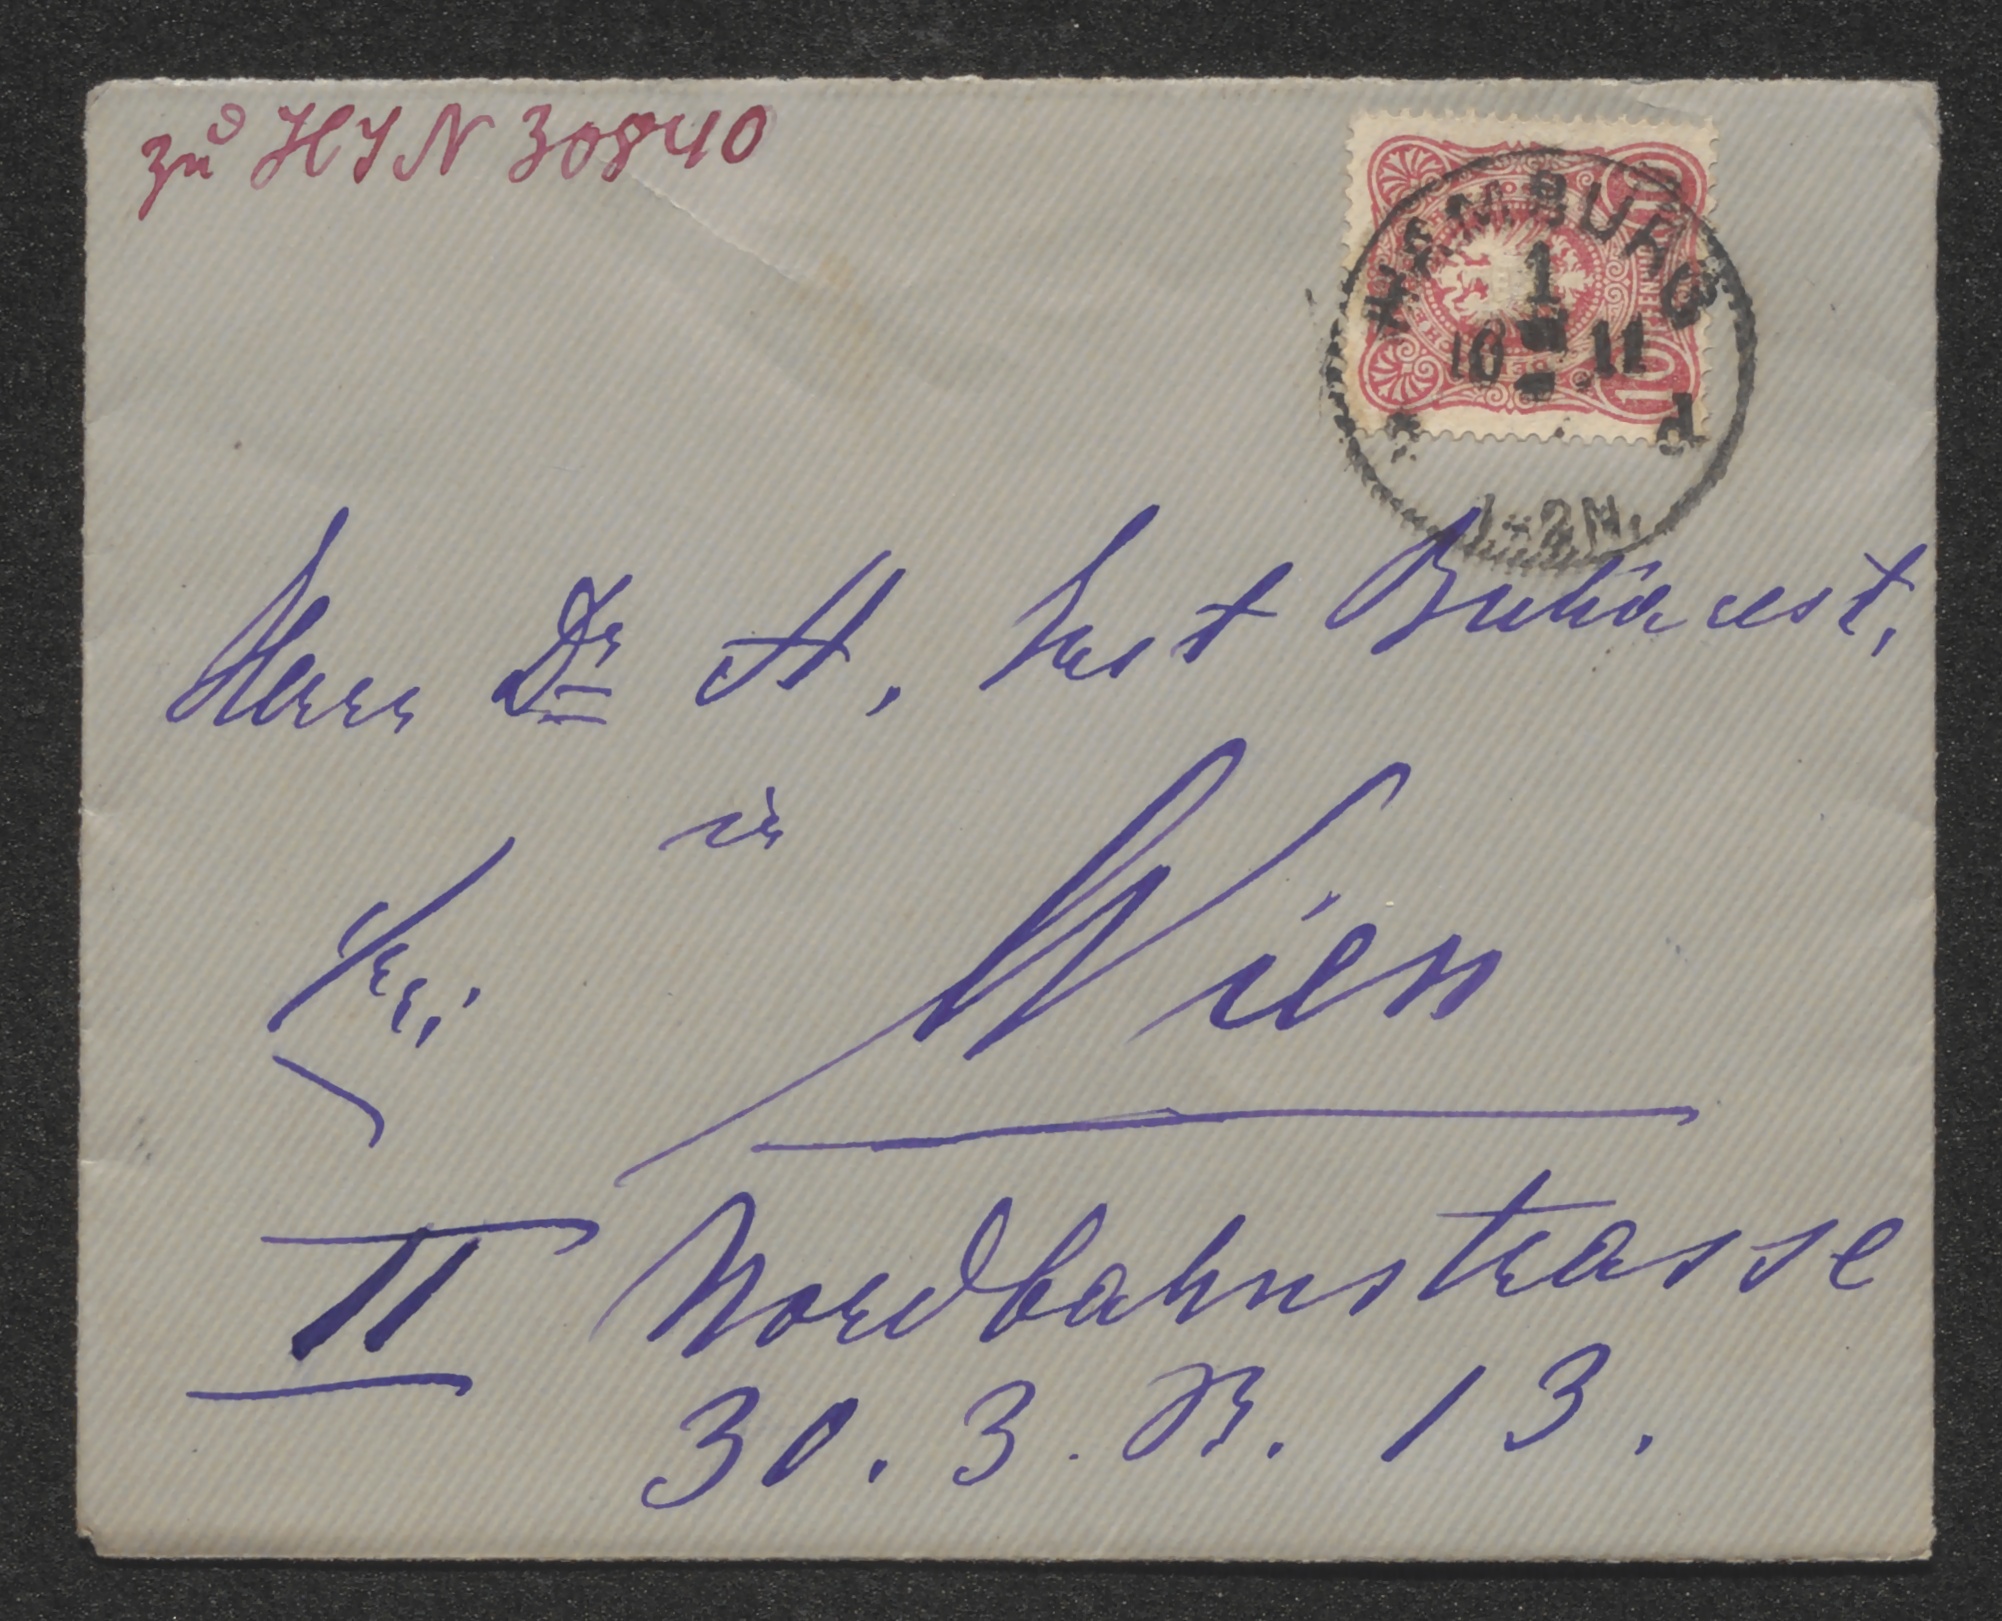 zu HIN 30840
HAMBURG
1
10 11
* d
1-2N.
10 PFENNIG
Herr Dr A.
in
Wien
II Nordbahnstrasse
30. 3. B. 13.